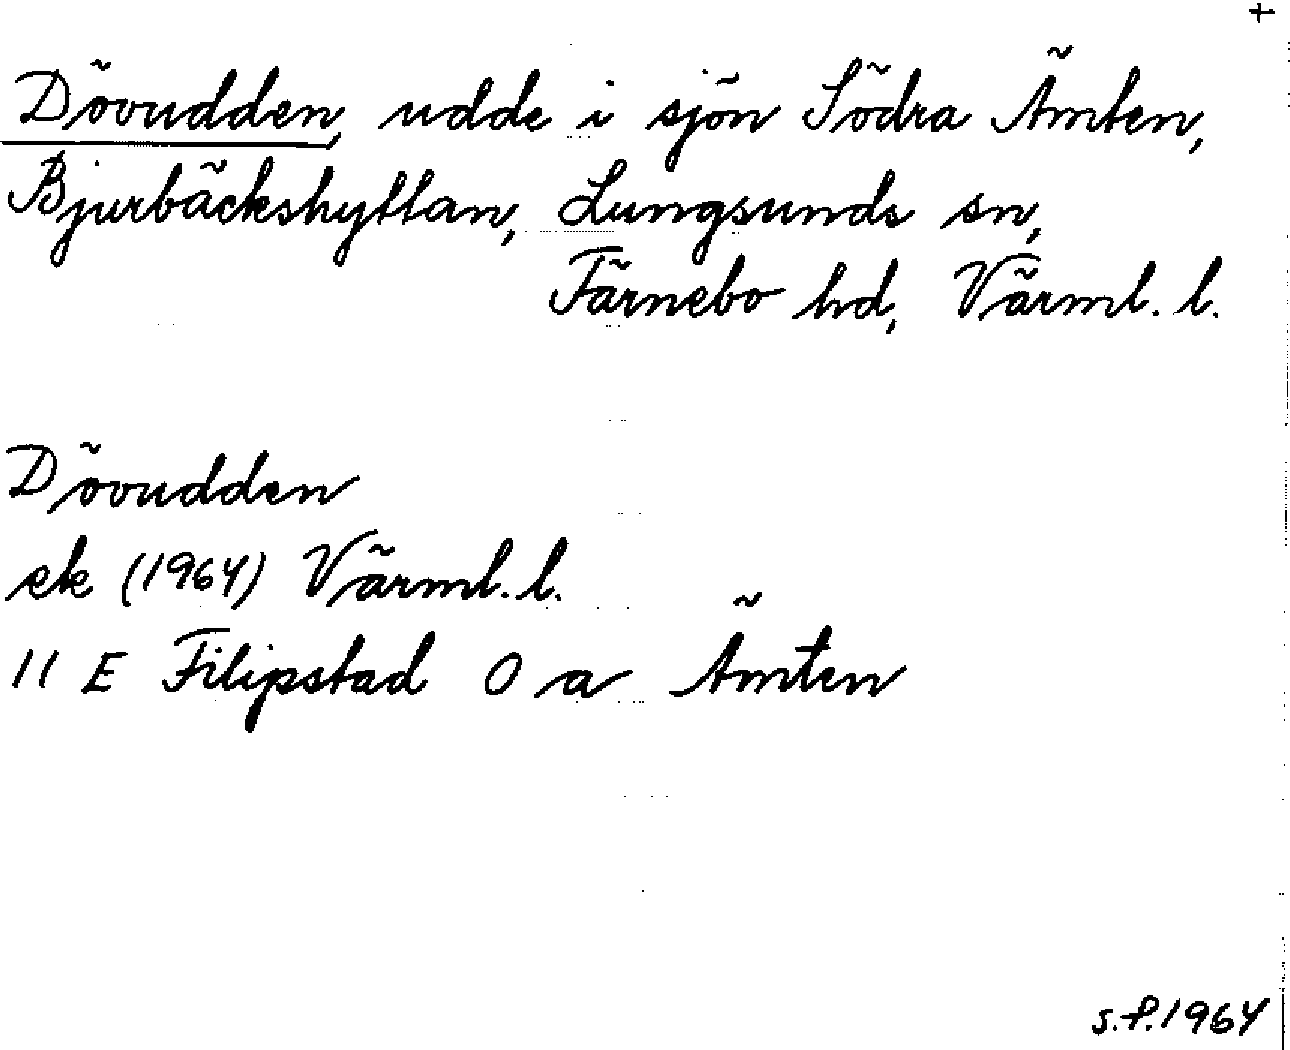 +
Dövudden, udde i sjön Södra Ämten,
Bjurbäckshyttan, Lungsunds sn,
Färnebo hd, Värml. l.
Dövudden
ek (1964) Värml. l.
11 E Filipstad 0 a Ämten
s.f. 1964